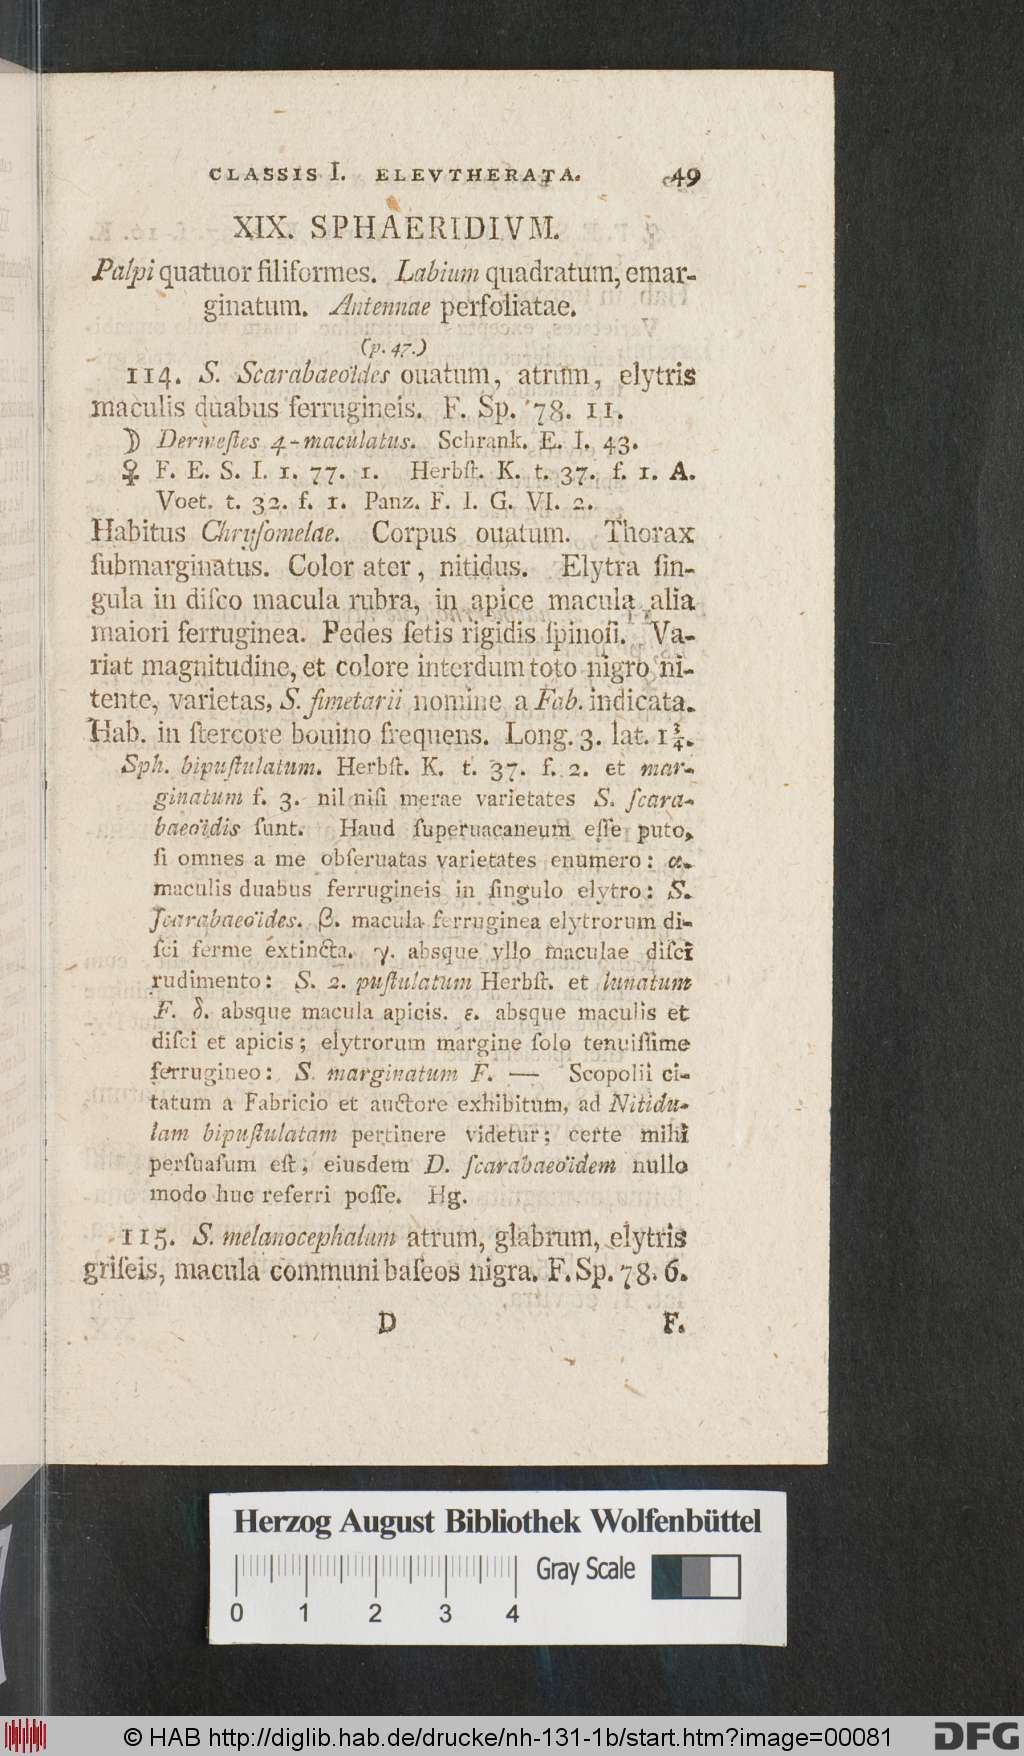 CLASSIS I. ELEVTHERATA. 49
XIX. SPHAERIDIVM.
Palpi quatuor filiformes. Labium quadratum, emar-
ginatum. Antennae perfoliatae.
(p. 47.)
114. S. Scarabaeoïdes ouatum, atrum, elytris
maculis duabus ferrugineis. F. Sp. 78. 11.
☽ Dermeſtes 4-maculatus. Schrank. E. I. 43.
♀ F. E. S. I. 1. 77. 1. Herbſt. K. t. 37. f. 1. A.
Voet. t. 32. f. 1. Panz. F. I. G. VI. 2.
Habitus Chryſomelae. Corpus ouatum. Thorax
ſubmarginatus. Color ater, nitidus. Elytra ſin-
gula in diſco macula rubra, in apice macula alia
maiori ferruginea. Pedes ſetis rigidis ſpinoſi. Va-
riat magnitudine, et colore interdum toto nigro ni-
tente, varietas, S. fimetarii nomine a Fab. indicata.
Hab. in ſtercore bouino frequens. Long. 3. lat. 1¾.
Sph. bipuſtulatum. Herbſt. K. t. 37. f. 2. et mar-
ginatum f. 3. nil niſi merae varietates S. ſcara-
baeoïdis ſunt. Haud ſuperuacaneum eſſe puto,
ſi omnes a me obſeruatas varietates enumero: α.
maculis duabus ferrugineis in ſingulo elytro: S.
ſcarabaeoïdes. β. macula ferruginea elytrorum di-
ſci ferme extincta. γ. absque vllo maculae diſci
rudimento: S. 2. puſtulatum Herbſt. et lunatum
F. δ. absque macula apicis. ε. absque maculis et
diſci et apicis; elytrorum margine ſolo tenuiſſime
ferrugineo: S. marginatum F. — Scopolii ci-
tatum a Fabricio et auctore exhibitum, ad Nitidu-
lam bipuſtulatam pertinere videtur; certe mihi
perſuaſum eſt, eiusdem D. ſcarabaeoïdem nullo
modo huc referri poſſe. Hg.
115. S. melanocephalum atrum, glabrum, elytris
griſeis, macula communi baſeos nigra. F. Sp. 78. 6.
D F.
Herzog August Bibliothek Wolfenbüttel
Gray Scale
0 1 2 3 4
© HAB http://diglib.hab.de/drucke/nh-131-1b/start.htm?image=00081
DFG